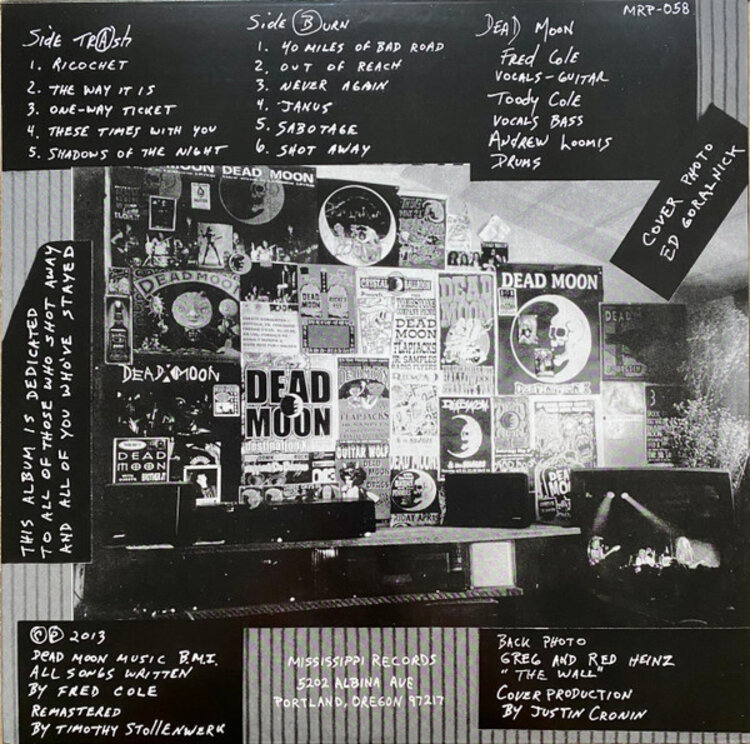 Side TRAsh
1. RICOCHET
2. THE WAY IT IS
3. ONE-WAY TICKET
4. THESE TIMES WITH YOU
5. SHADOWS OF THE NIGHT
Side BURN
1. 40 MILES OF BAD ROAD
2. OUT OF REACH
3. NEVER AGAIN
4. JANUS
5. SABOTAGE
6. SHOT AWAY
DEAD MOON
FRED COLE
VOCALS-GUITAR
TOODY COLE
VOCALS BASS
ANDREW LOOMIS
DRUMS
MRP-058
COVER PHOTO
ED GORALNICK
THIS ALBUM IS DEDICATED
TO ALL OF THOSE WHO SHOT AWAY
AND ALL OF YOU WHO'VE STAYED
DEAD MOON
DEAD MOON
DEAD MOON
CRYSTAL BALLROOM
DEAD
MOON
FLAPJACKS
DEAD MOON
DEAD MOON
DEAD
MOON
destination X
GUITAR WOLF
DEAD
MOON
FRIDAY APRIL
© ℗ 2013
DEAD MOON MUSIC B.M.I.
ALL SONGS WRITTEN
BY FRED COLE
REMASTERED
BY TIMOTHY STOLLENWERK
MISSISSIPPI RECORDS
5202 ALBINA AVE
PORTLAND, OREGON 97217
BACK PHOTO
GREG AND RED HEINZ
"THE WALL"
COVER PRODUCTION
BY JUSTIN CRONIN